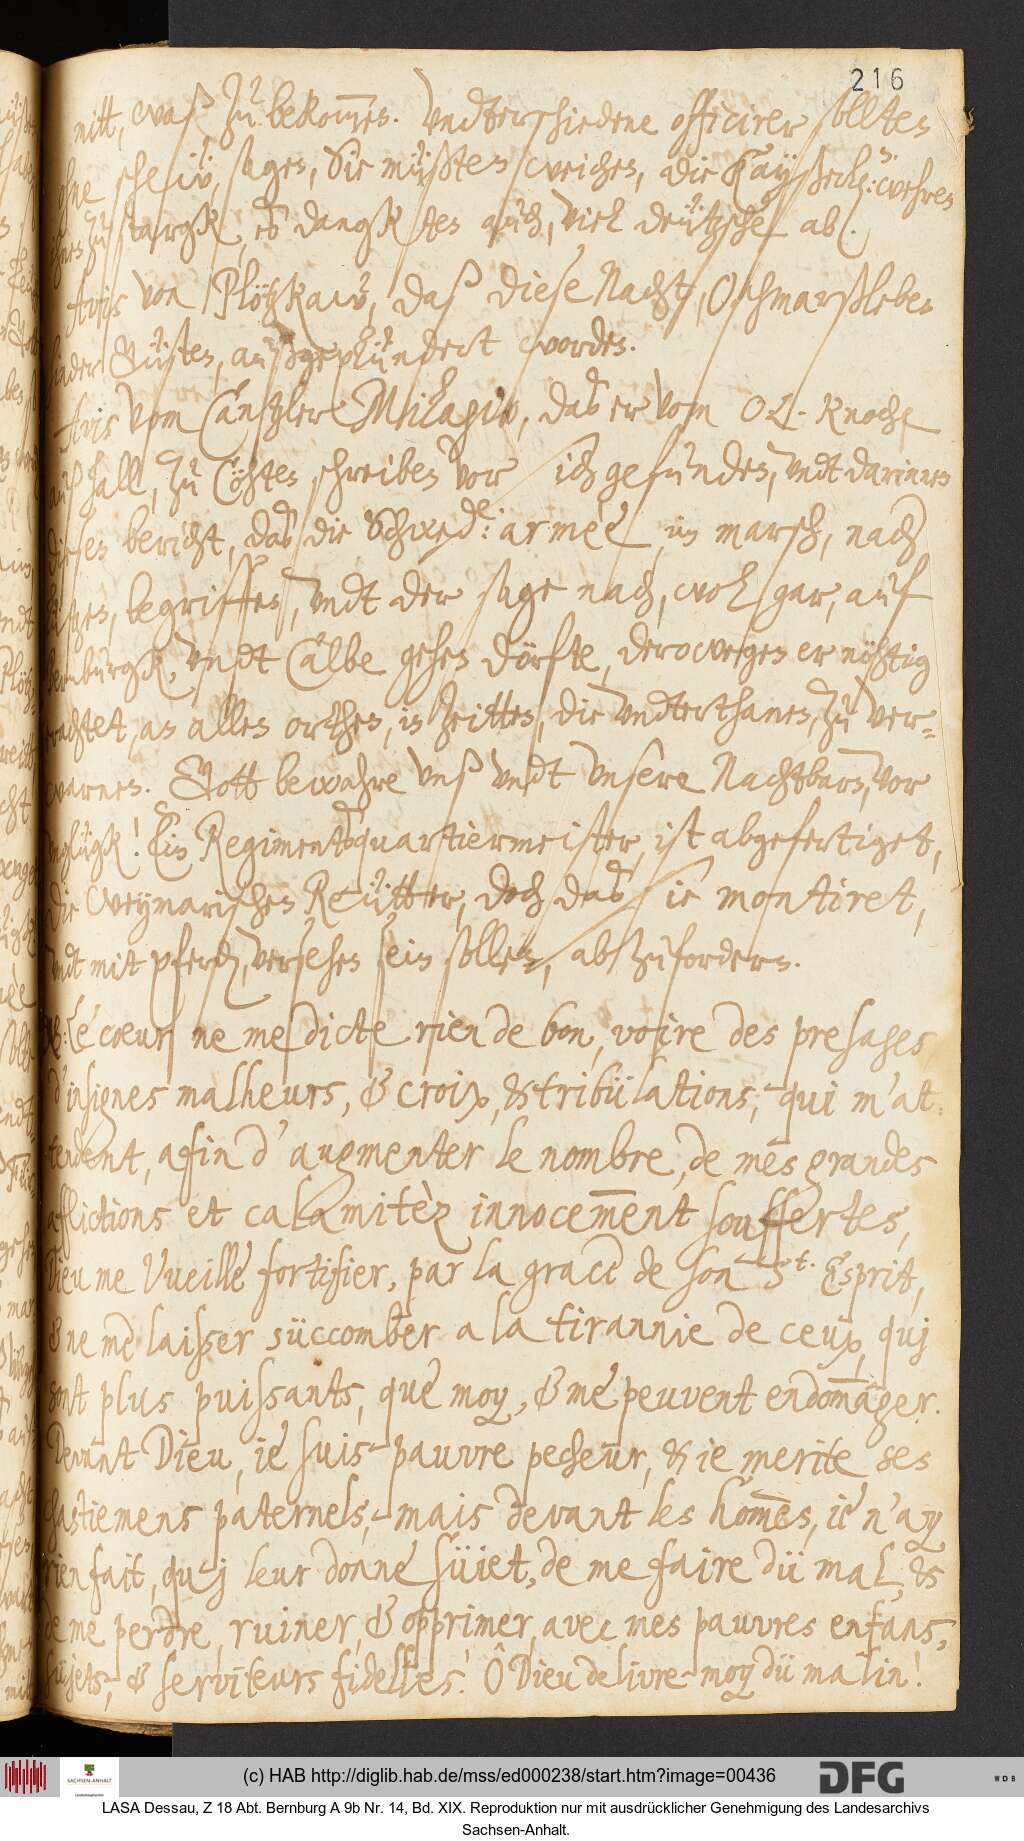 216
mitt, waß zu bekom̅en. Undterschiedene officirer sollten
ohne schew, sagen, Sie müßten weichen, die Kayßerl: wehren
ihnen zu stargk, es dangkten auch, viel deützsche ab.
Avis von Plötzkaw, daß diese Nacht, Oschmarßleben
undt Güsten, außgeplündert worden.
Avis vom Cantzler Milagio, das er vom O L. Knoche
auß hall, zu Cöhten schreiben vor sich gefunden, undt darinnen
diesen bericht, das die Schwed: armèe, in marsch, nach
begriffen, undt der sage nach, wol gar, auf
Bernburgk, undt Calbe gehen dörfte, derowegen er nöhtig
erachtet, an allen orthen, in zeitten, die undterthanen, zu ver-
warnen. Gott bewahre unß undt unsere Nachtbarn, vor
unglügk! Ein Regimentsquartiermeister, ist abgefertiget,
die Weymarischen Reütter, doch das sie montiret,
undt mit pferdt, versehen sein sollen, abzufordern.
Le coeur ne me dicte rien de bon, voire des presages
d'insignes malheurs, & croix, & tribülations, qui m'at-
tendent, afin d'augmenter le nombre, de mes grandes
afflictions et calamitèz innocem̅ent souffertes,
Dieu me vueille fortifier, par la grace de son St. Esprit,
& ne me laisser süccomber a la tirannie de ceux, quj
sont plus puissants, que moy, & me peuvent endom̅ager.
Devant Dieu, ie suis pauvre pecheur, & ie merite ses
chastiemens paternels, mais devant les hom̅es, ie n'ay
rien fait, quj leur donne süiet, de me faire dü mal, &
de me perdre, ruiner, & opprimer, avec mes pauvres enfans,
süjets, & serviteurs fidelles. Ô Dieu delivre moy dü malin!
(c) HAB http://diglib.hab.de/mss/ed000238/start.htm?image=00436
SACHSEN-ANHALT
DFG
WDB
LASA Dessau, Z 18 Abt. Bernburg A 9b Nr. 14, Bd. XIX. Reproduktion nur mit ausdrücklicher Genehmigung des Landesarchivs
Sachsen-Anhalt.